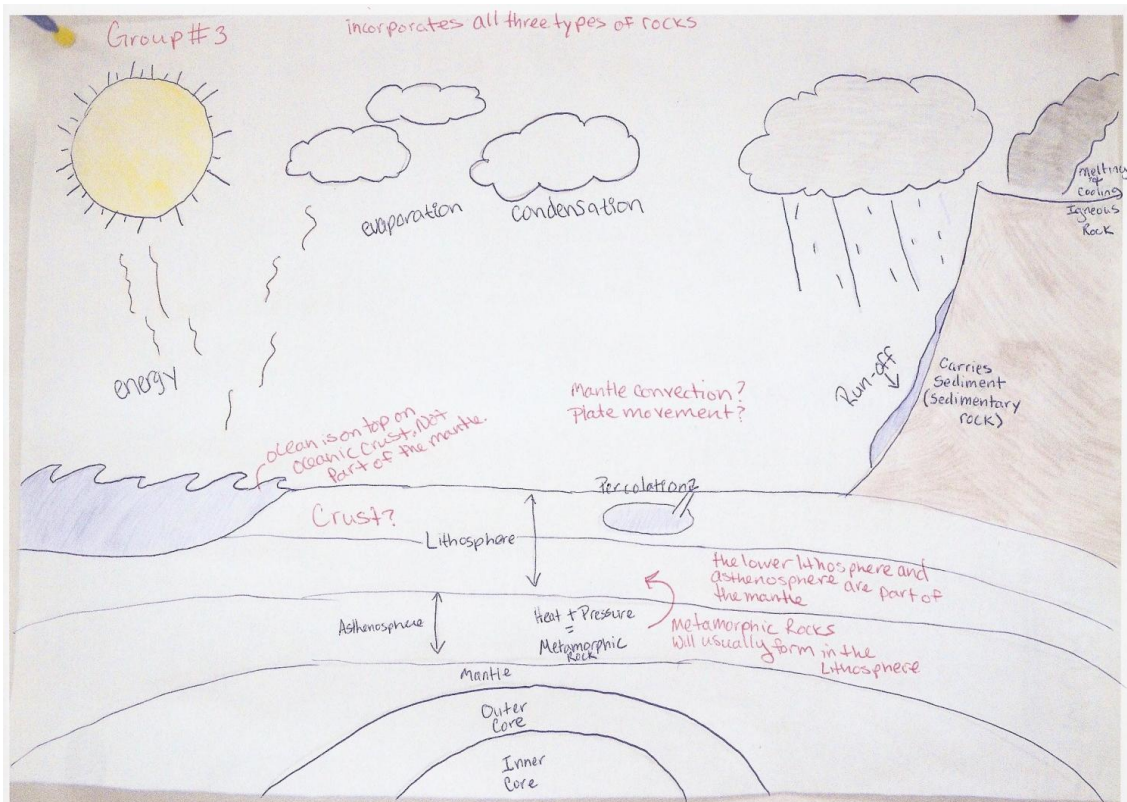 Group # 3
incorporates all three types of rocks
evaporation
condensation
melting
+
cooling
Igneous
Rock
energy
Run-off
Carries
Sediment
(Sedimentary
rock)
Mantle convection?
Plate movement?
ocean is on top on
oceanic crust, Not
part of the mantle.
Percolation
Crust?
Lithosphere
the lower lithosphere and
asthenosphere are part of
the mantle
Asthenosphere
Heat + Pressure
=
Metamorphic
Rock
Metamorphic Rocks
will usually form in the
Lithosphere
Mantle
Outer
Core
Inner
Core